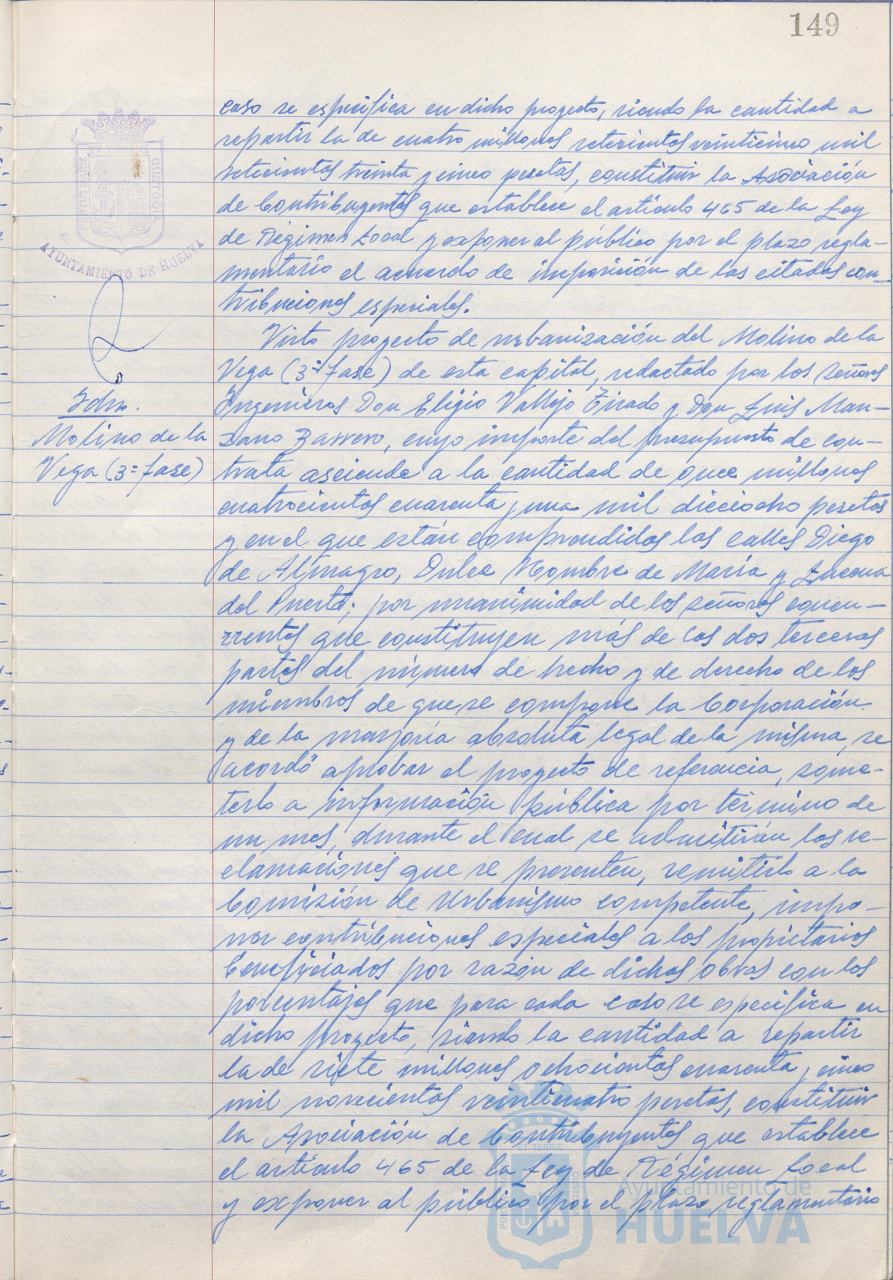 149
caso se especifica en dicho proyecto, siendo la cantidad a
repartir la de cuatro millones setecientos veinticinco mil
setecientas treinta y cinco pesetas, constituir la Asociación
de Contribuyentes que establece el artículo 465 de la Ley
de Régimen Local y exponer al público por el plazo regla-
mentario el acuerdo de imposición de las citadas con-
tribuciones especiales.
AYUNTAMIENTO DE HUELVA
Idm.
Molino de la
Vega (3ª fase)
Visto proyecto de urbanización del Molino de la
Vega (3ª fase) de esta capital, redactado por los señores
Ingenieros Don Eligio Vallejo Tirado y Don Luis Man-
zano Barrero, cuyo importe del presupuesto de con-
trata asciende a la cantidad de once millones
cuatrocientas cuarenta y una mil dieciocho pesetas
y en el que están comprendidas las calles Diego
de Almagro, Dulce Nombre de María y Lucena
del Puerto; por unanimidad de los señores concu-
rrentes que constituyen más de las dos terceras
partes del número de hecho y de derecho de los
miembros de que se compone la Corporación
y de la mayoría absoluta legal de la misma, se
acordó aprobar el proyecto de referencia, some-
terlo a información pública por término de
un mes, durante el cual se admitirán las re-
clamaciones que se presenten, remitirlo a la
Comisión de Urbanismo competente, impo-
ner contribuciones especiales a los propietarios
beneficiados por razón de dichas obras con los
porcentajes que para cada caso se especifica en
dicho proyecto, siendo la cantidad a repartir
la de siete millones ochocientas cuarenta y cinco
mil novecientas veinticuatro pesetas, constituir
la Asociación de Contribuyentes que establece
el artículo 465 de la Ley de Régimen Local
y exponer al público por el plazo reglamentario
Ayuntamiento de
HUELVA